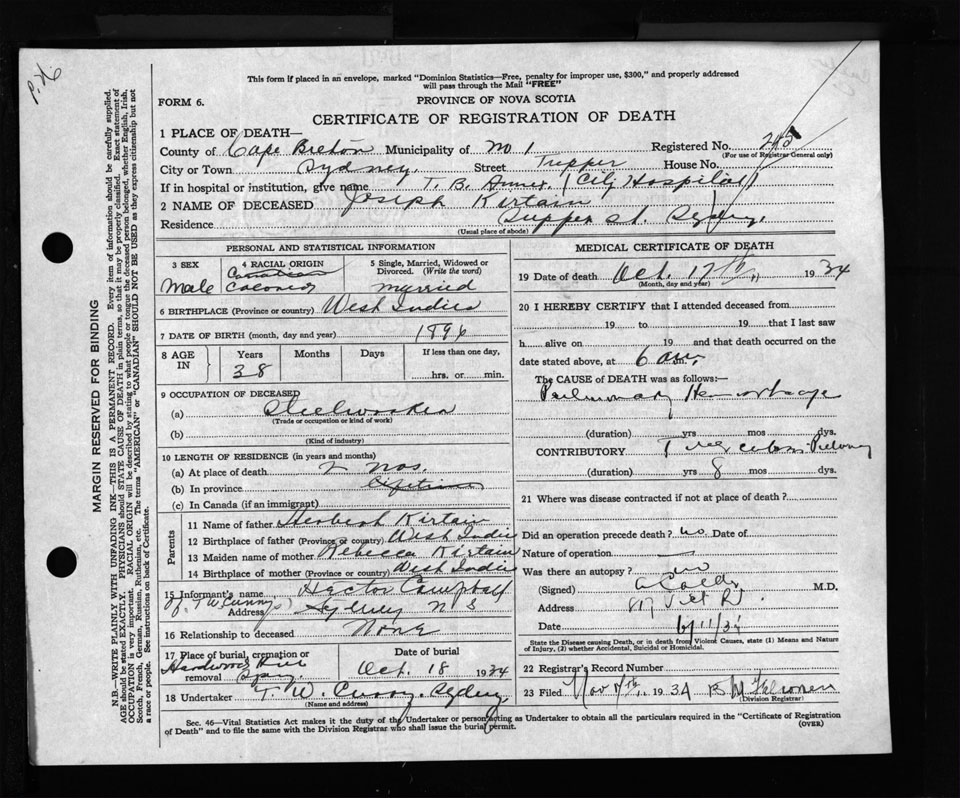 P.H.
This form if placed in an envelope, marked "Dominion Statistics—Free, penalty for improper use, $300," and properly addressed
will pass through the Mail "FREE"
FORM 6.
PROVINCE OF NOVA SCOTIA
CERTIFICATE OF REGISTRATION OF DEATH
1 PLACE OF DEATH—
County of Cape Breton Municipality of No 1 Registered No. 245
(For use of Registrar General only)
City or Town Sydney Street Tupper House No.
If in hospital or institution, give name T. B. Annex (City Hospital)
2 NAME OF DECEASED Joseph Kirtain
Residence Tupper St. Sydney.
(Usual place of abode)
PERSONAL AND STATISTICAL INFORMATION
3 SEX
Male
4 RACIAL ORIGIN
Canadian
Colored
5 Single, Married, Widowed or
Divorced. (Write the word)
Married
6 BIRTHPLACE (Province or country) West Indies
7 DATE OF BIRTH (month, day and year) 1896
8 AGE IN
Years Months Days
38
If less than one day,
hrs. or min.
9 OCCUPATION OF DECEASED
(a) Steelworker
(Trade or occupation or kind of work)
(b)
(Kind of industry)
10 LENGTH OF RESIDENCE (in years and months)
(a) At place of death 2 mos.
(b) In province Lifetime
(c) In Canada (if an immigrant)
Parents
11 Name of father Herbert Kirtain
12 Birthplace of father (Province or country) West Indies
13 Maiden name of mother Rebecca Kirtain
14 Birthplace of mother (Province or country) West Indies
15 Informant's name Hector Campbell
of T W Curry
Address Sydney N S
16 Relationship to deceased None
17 Place of burial, cremation or
removal
Hardwood Hill
Syd.
Date of burial
Oct. 18 1934
18 Undertaker T. W. Curry. Sydney
(Name and address)
MEDICAL CERTIFICATE OF DEATH
19 Date of death Oct. 17th 1934
(Month, day and year)
20 I HEREBY CERTIFY that I attended deceased from
19 to 19 that I last saw
h alive on 19 and that death occurred on the
date stated above, at 6 am.
The CAUSE of DEATH was as follows:—
Pulmonary Hemorrhage
(duration) yrs mos dys.
CONTRIBUTORY
(duration) yrs 8 mos dys.
21 Where was disease contracted if not at place of death?
Did an operation precede death? no. Date of
Nature of operation —
Was there an autopsy? no
(Signed) M.D.
Address
Date 6/11/34
State the Disease causing Death, or in death from Violent Causes, state (1) Means and Nature
of Injury, (2) whether Accidental, Suicidal or Homicidal.
22 Registrar's Record Number
23 Filed Nov 1934
(Division Registrar)
Sec. 46—Vital Statistics Act makes it the duty of the Undertaker or person acting as Undertaker to obtain all the particulars required in the "Certificate of Registration
of Death" and to file the same with the Division Registrar who shall issue the burial permit.
(OVER)
MARGIN RESERVED FOR BINDING
N.B.—WRITE PLAINLY WITH UNFADING INK—THIS IS A PERMANENT RECORD. Every item of information should be carefully supplied.
AGE should be stated EXACTLY. PHYSICIANS should STATE CAUSE OF DEATH in plain terms, so that it may be properly classified. Exact statement of
OCCUPATION is very important. RACIAL ORIGIN will be described by stating to what people or tongue the deceased person belonged, whether English, Irish,
Scotch, French, German, Russian, Ruthenian, etc. The terms "AMERICAN" or "CANADIAN" SHOULD NOT BE USED as they express citizenship but not
a race or people. See instructions on back of Certificate.